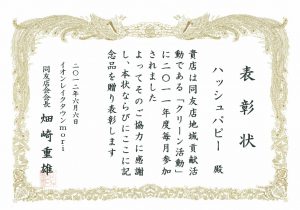 表彰状
ハッシュパピー 殿
貴店は同友店地域貢献活
動である「クリーン活動」
に二〇一一年度毎月参加
されました
よってそのご協力に感謝
し、本状ならびにここに記
念品を贈り表彰します
二〇一二年六月六日
イオンレイクタウンmori
同友店会会長
畑崎重雄